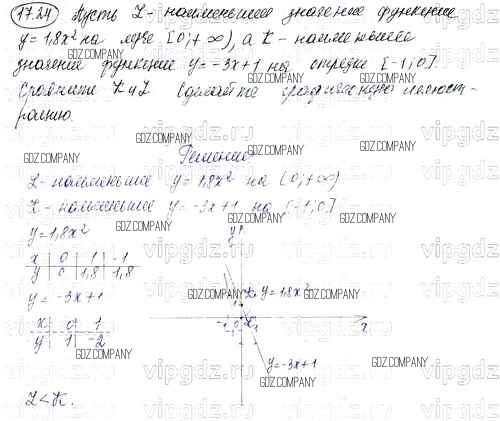 17.24 Пусть L - наименьшее значение функции
y = 1,8x² на луче [0; +∞), а K - наименьшее
значение функции y = -3x+1 на отрезке [-1; 0]
Сравните K и L Сделайте графическую иллюст-
рацию.
Решение
L - наименьшее y = 1,8x² на [0; +∞)
K - наименьшее y = -3x+1 на [-1; 0]
y = 1,8x²
x 0 1 -1
y 0 1,8 1,8
y = -3x+1
x 0 1
y 1 -2
y
L y = 1,8x²
-1 0 K 1 x
y = -3x+1
L < K.
GDZ.COMPANY
vipgdz.ru